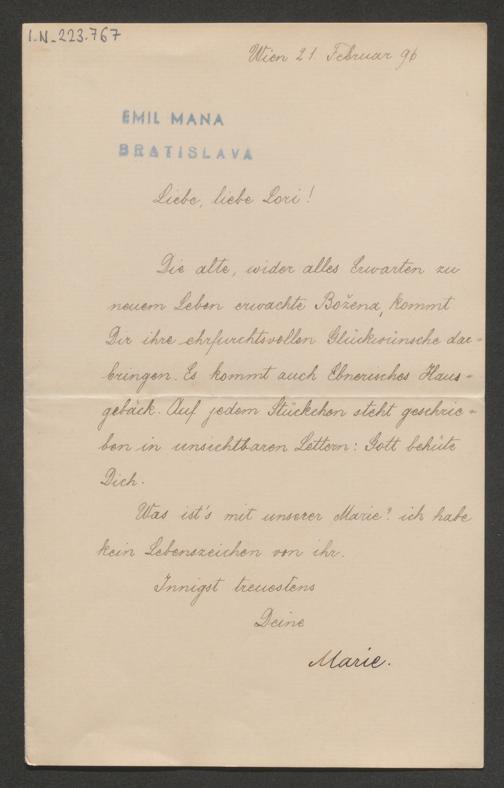 I.N. 223.767
Wien 21. Februar 96
EMIL MANA
BRATISLAVA
Liebe, liebe Lori!
Die alte, wider alles Erwarten zu
neuem Leben erwachte Božena, kommt
Dir ihre ehrfurchtsvollen Glückwünsche dar-
bringen. Es kommt auch Ebnerisches Haus-
gebäck. Auf jedem Stückchen steht geschrie-
ben in unsichtbaren Lettern: Gott behüte
Dich.
Was ist's mit unserer Marie? ich habe
kein Lebenszeichen von ihr.
Innigst treuestens
Deine
Marie.